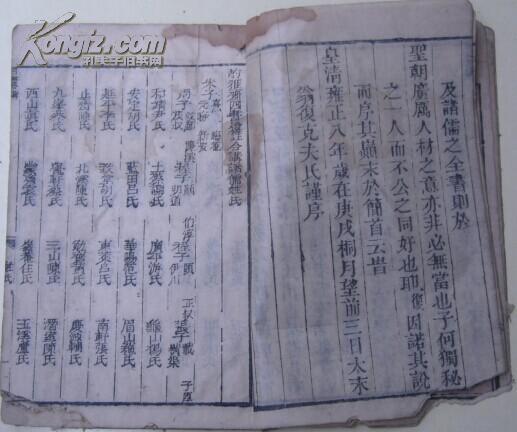 及諸儒之全書則於
聖朝廣厲人材之意亦非必無當也子何獨秘
之一人而不公之同好也耶復因諾其說
而序其巔末於簡首云時
皇清雍正八年歲在庚戌桐月望前三日太末
翁復克夫氏謹序
酌雅齋四書遵註合講諸儒姓氏
朱子 熹 元晦
周子 敦頤 程子 顥 伯淳 程子 頤 正叔 張子 載 子厚
和靖尹氏 上蔡謝氏 廣平游氏 龜山楊氏
安定胡氏 藍田呂氏 華陽范氏 眉山蘇氏
延平李氏 致堂胡氏 東萊呂氏 南軒張氏
止齋陳氏 北溪陳氏 勉齋黃氏 慶源輔氏
九峯蔡氏 覺軒蔡氏 三山陳氏 潛室陳氏
西山真氏 玉溪盧氏
姓氏
Kongfz.com
孔夫子旧书网